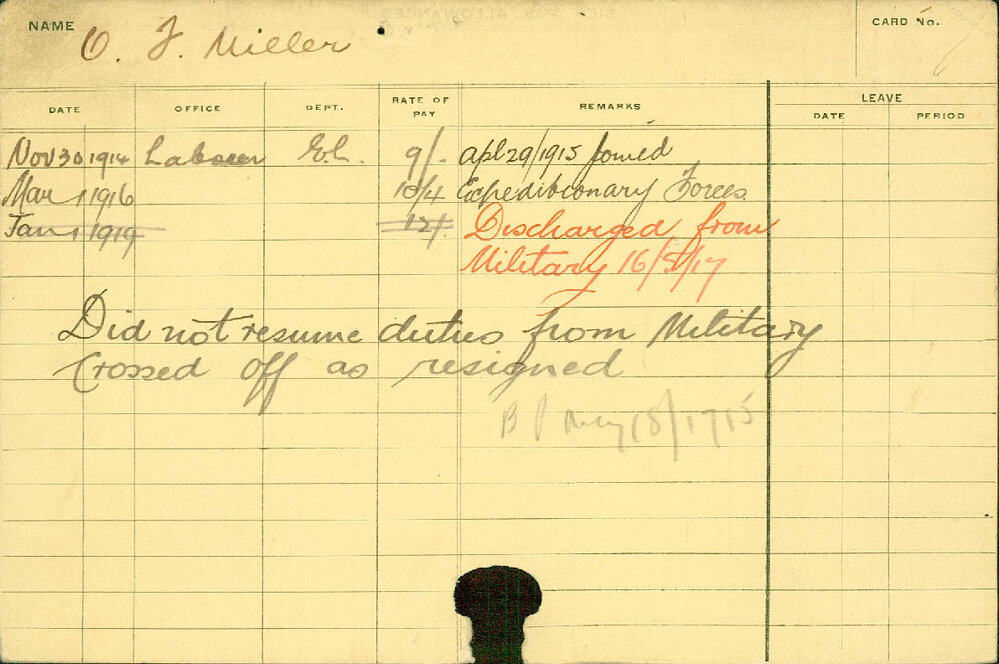 NAME O. F. Miller CARD No.
DATE OFFICE DEPT. RATE OF PAY REMARKS LEAVE
DATE PERIOD
Nov 30 1914 Labourer E.L. 9/- Apl 29/1915 joined
Mar 1 1916 10/4 Expeditionary Forces
Jan 1 1919 12/- Discharged from
Military 16/5/17
Did not resume duties from Military
Crossed off as resigned
B P 18/1715